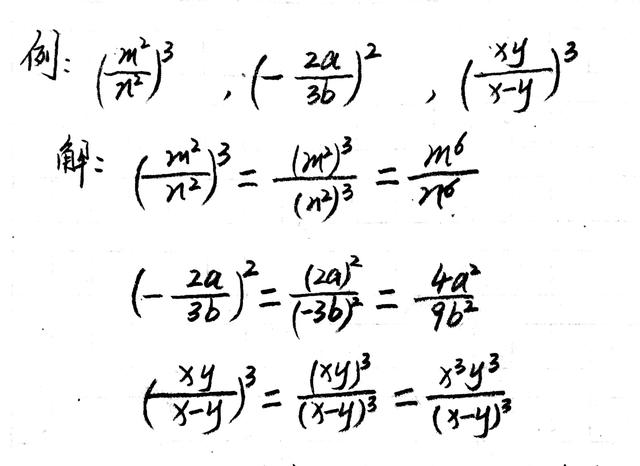 例: (m²/n²)³ , (-2a/3b)² , (xy/x-y)³
解: (m²/n²)³ = (m²)³/(n²)³ = m⁶/n⁶
(-2a/3b)² = (2a)²/(-3b)² = 4a²/9b²
(xy/x-y)³ = (xy)³/(x-y)³ = x³y³/(x-y)³